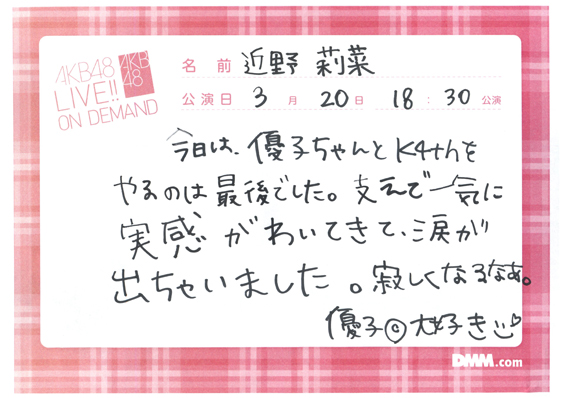 AKB48
LIVE!!
ON DEMAND
AKB
48
名前 近野 莉菜
公演日 3月 20日 18:30 公演
今日は、優子ちゃんとK4thを
やるのは最後でした。支えで一気に
実感がわいてきて、涙が
出ちゃいました。寂しくなるなあ。
優子©大好き
DMM.com